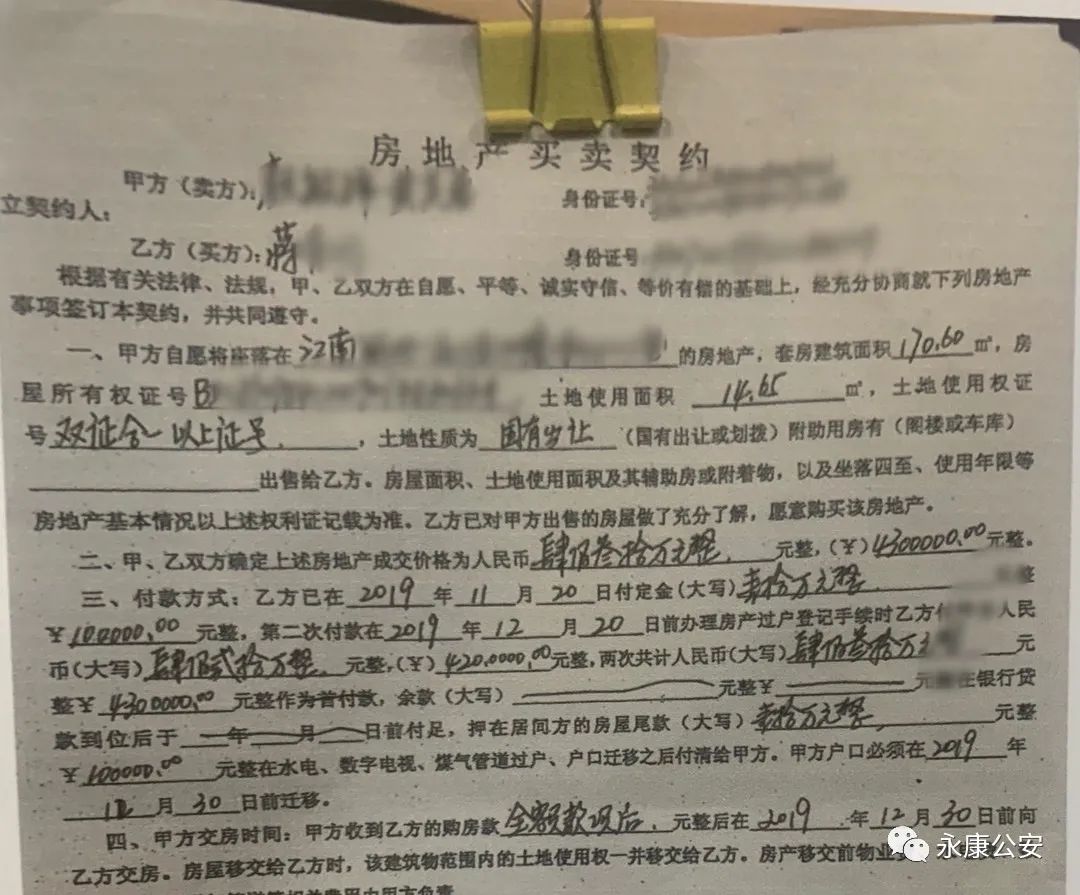 房地产买卖契约
甲方（卖方）： 身份证号：
立契约人：
乙方（买方）：蒋 身份证号
根据有关法律、法规，甲、乙双方在自愿、平等、诚实守信、等价有偿的基础上，经充分协商就下列房地产
事项签订本契约，并共同遵守。
一、甲方自愿将座落在 江南 的房地产，套房建筑面积 170.60 ㎡，房
屋所有权证号 B 土地使用面积 14.65 ㎡，土地使用权证
号 双证合一 以上证号 ，土地性质为 国有出让 （国有出让或划拨）附助用房有（阁楼或车库）
出售给乙方。房屋面积、土地使用面积及其辅助房或附着物，以及坐落四至、使用年限等
房地产基本情况以上述权利证记载为准。乙方已对甲方出售的房屋做了充分了解，愿意购买该房地产。
二、甲、乙双方确定上述房地产成交价格为人民币 肆佰叁拾万元整 元整，（￥）4300000.00 元整。
三、付款方式：乙方已在 2019 年 11 月 20 日付定金（大写）壹拾万元整 整
￥ 100000.00 元整，第二次付款在 2019 年 12 月 20 日前办理房产过户登记手续时乙方 人民
币（大写）肆佰贰拾万整 元整，（￥）4200000.00 元整，两次共计人民币（大写）肆佰叁拾万元 元
整￥ 4300000.00 元整作为首付款，余款（大写） 元整￥ 元 在银行贷
款到位后于 年 月 日前付足，押在居间方的房屋尾款（大写）壹拾万元整 元整
￥ 100000.00 元整在水电、数字电视、煤气管道过户、户口迁移之后付清给甲方。甲方户口必须在 2019 年
12 月 30 日前迁移。
四、甲方交房时间：甲方收到乙方的购房款 全额款项后 元整后在 2019 年 12 月 30 日前向
乙方交房。房屋移交给乙方时，该建筑物范围内的土地使用权一并移交给乙方。房产移交前物业
永康公安